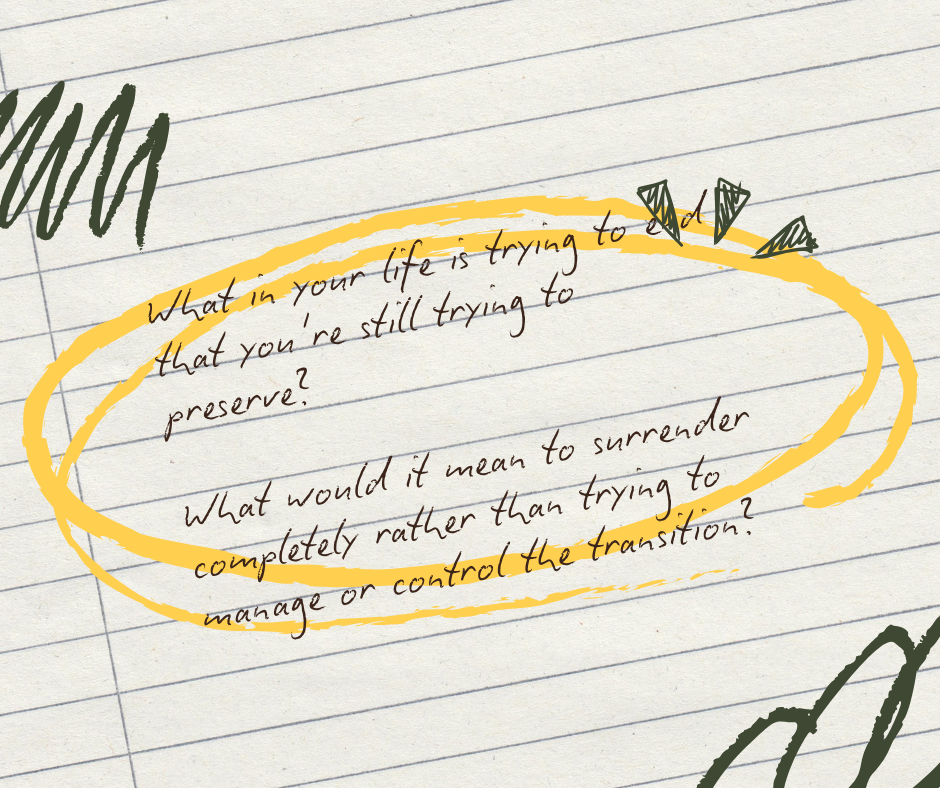 What in your life is trying to end
that you're still trying to
preserve?
What would it mean to surrender
completely rather than trying to
manage or control the transition?